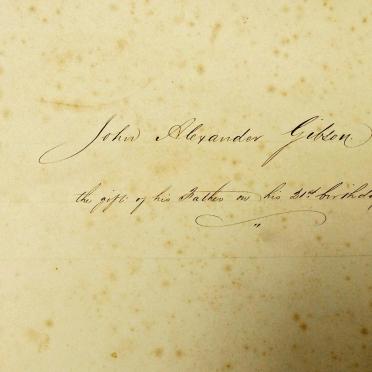 John Alexander Gibson
the gift of his Father on his 21st birthday